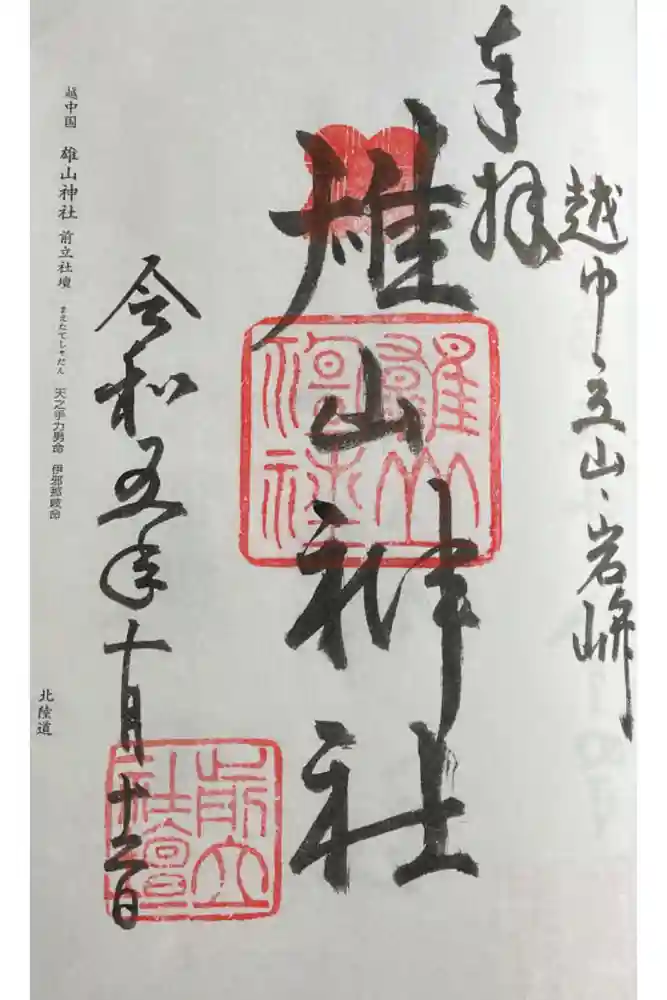 奉拝
越中立山、岩峅
雄山神社
雄山神社
前立社壇
令和五年十月十三日
越中国 雄山神社 前立社壇 まえたてしゃだん 天之手力男命 伊邪那岐命
北陸道